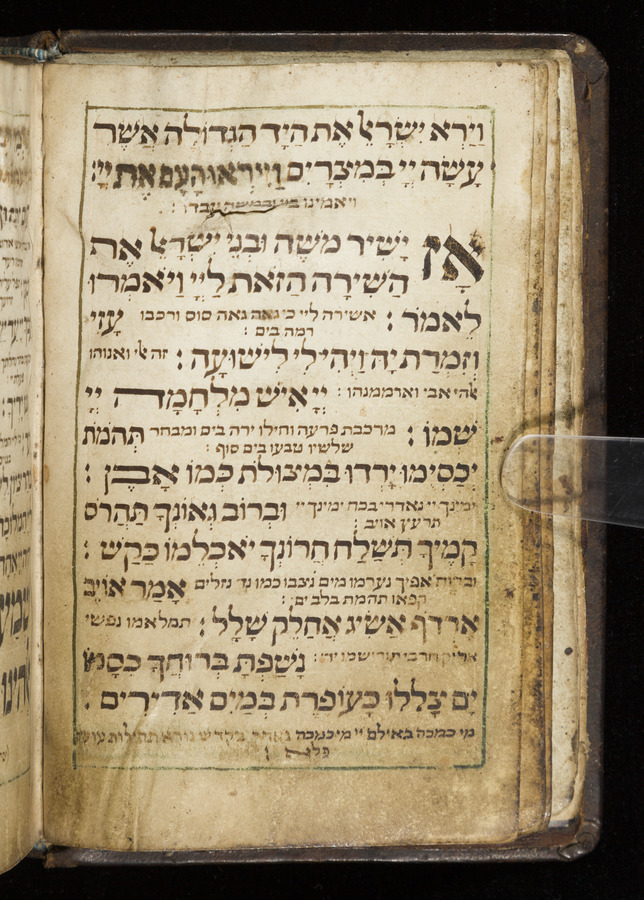 וַיַרְא יִשְרָאֵל אֶת הַיָד הַגְדוֹלָה אֲשֶר
עָשָה יְיָ בְמִצְרַיִם וַיִירְאוּ הָעָם אֶת יְיָ:
ויאמינו ביי ובמשה עבדו:
אָז יָשִיר משֶה וּבְנֵי יִשְרָאֵל אֶת
הַשִירָה הַזאת לַייָ וַיאמְרוּ
לֵאמר: אשירה ליי כי גאה גאה סוס ורכבו עָזִי
רמה בים:
וְזִמְרַת יָה וַיְהִי לִי לִישוּעָה: זה אלי ואנוהו
אלהי אבי וארממנהו: יְיָ אִיש מִלְחָמָה יְיָ
שְמוֹ: מרכבת פרעה וחילו ירה בים ומבחר תְהמת
שלשיו טבעו בים סוף:
יְכַסְיֻמוּ יָרְדוּ בִמְצוּלת כְמוֹ אָבֶן:
ימינך יי נאדרי בכח ימינך יי וּבְרוֹב גְאוֹנְךָ תַהֲרס
תרעץ אויב:
קָמֶיךָ תְשַלַח חֲרוֹנְךָ יאכְלֵמוֹ כַקַש:
וברוח אפיך נערמו מים נצבו כמו נד נוזלים אָמַר אוֹיֵב
קפאו תהמת בלב ים:
אֶרְדף אַשִיג אֲחַלֵק שָלָל: תמלאמו נפשי
אריק חרבי תורישמו ידי: נָשַפְתָ בְרוּחֲךָ כִסָמוֹ
יָם צָלֲלוּ כָעוֹפֶרֶת בְמַיִם אַדִירִים.
מי כמכה באילם יי מי כמכה נאדר בקדש נורא תהילות עושה
פלא: